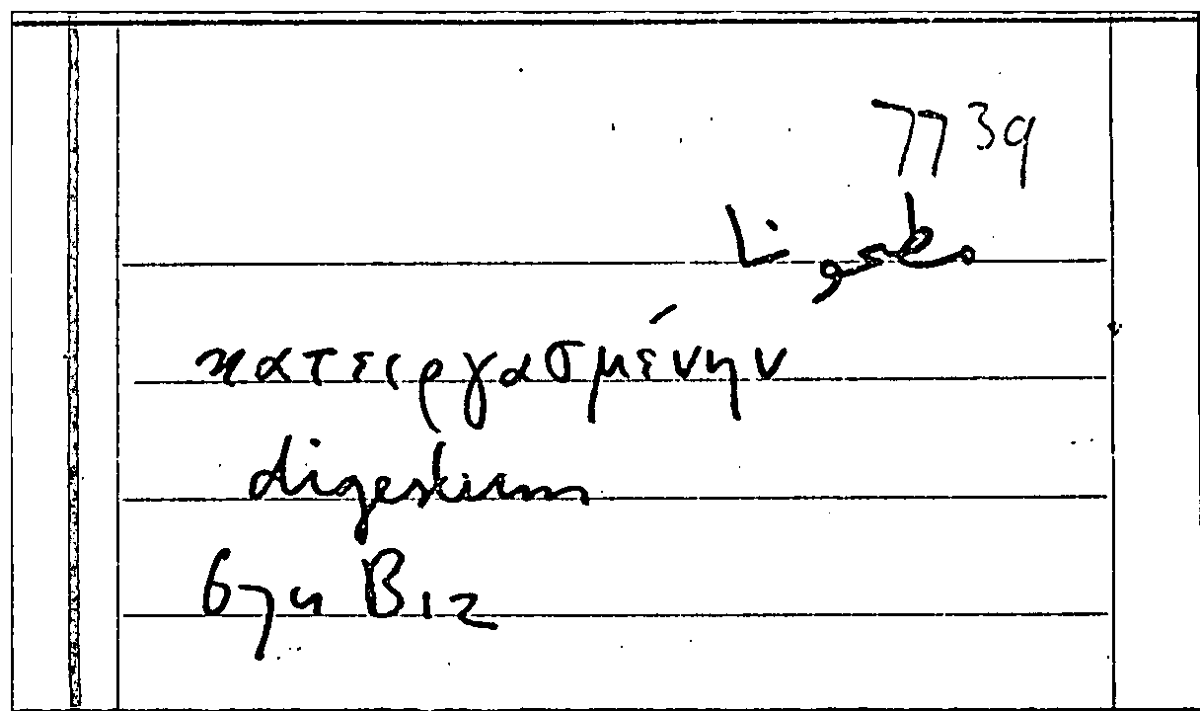 7739
κατειργασμένην
digestum
674 B12